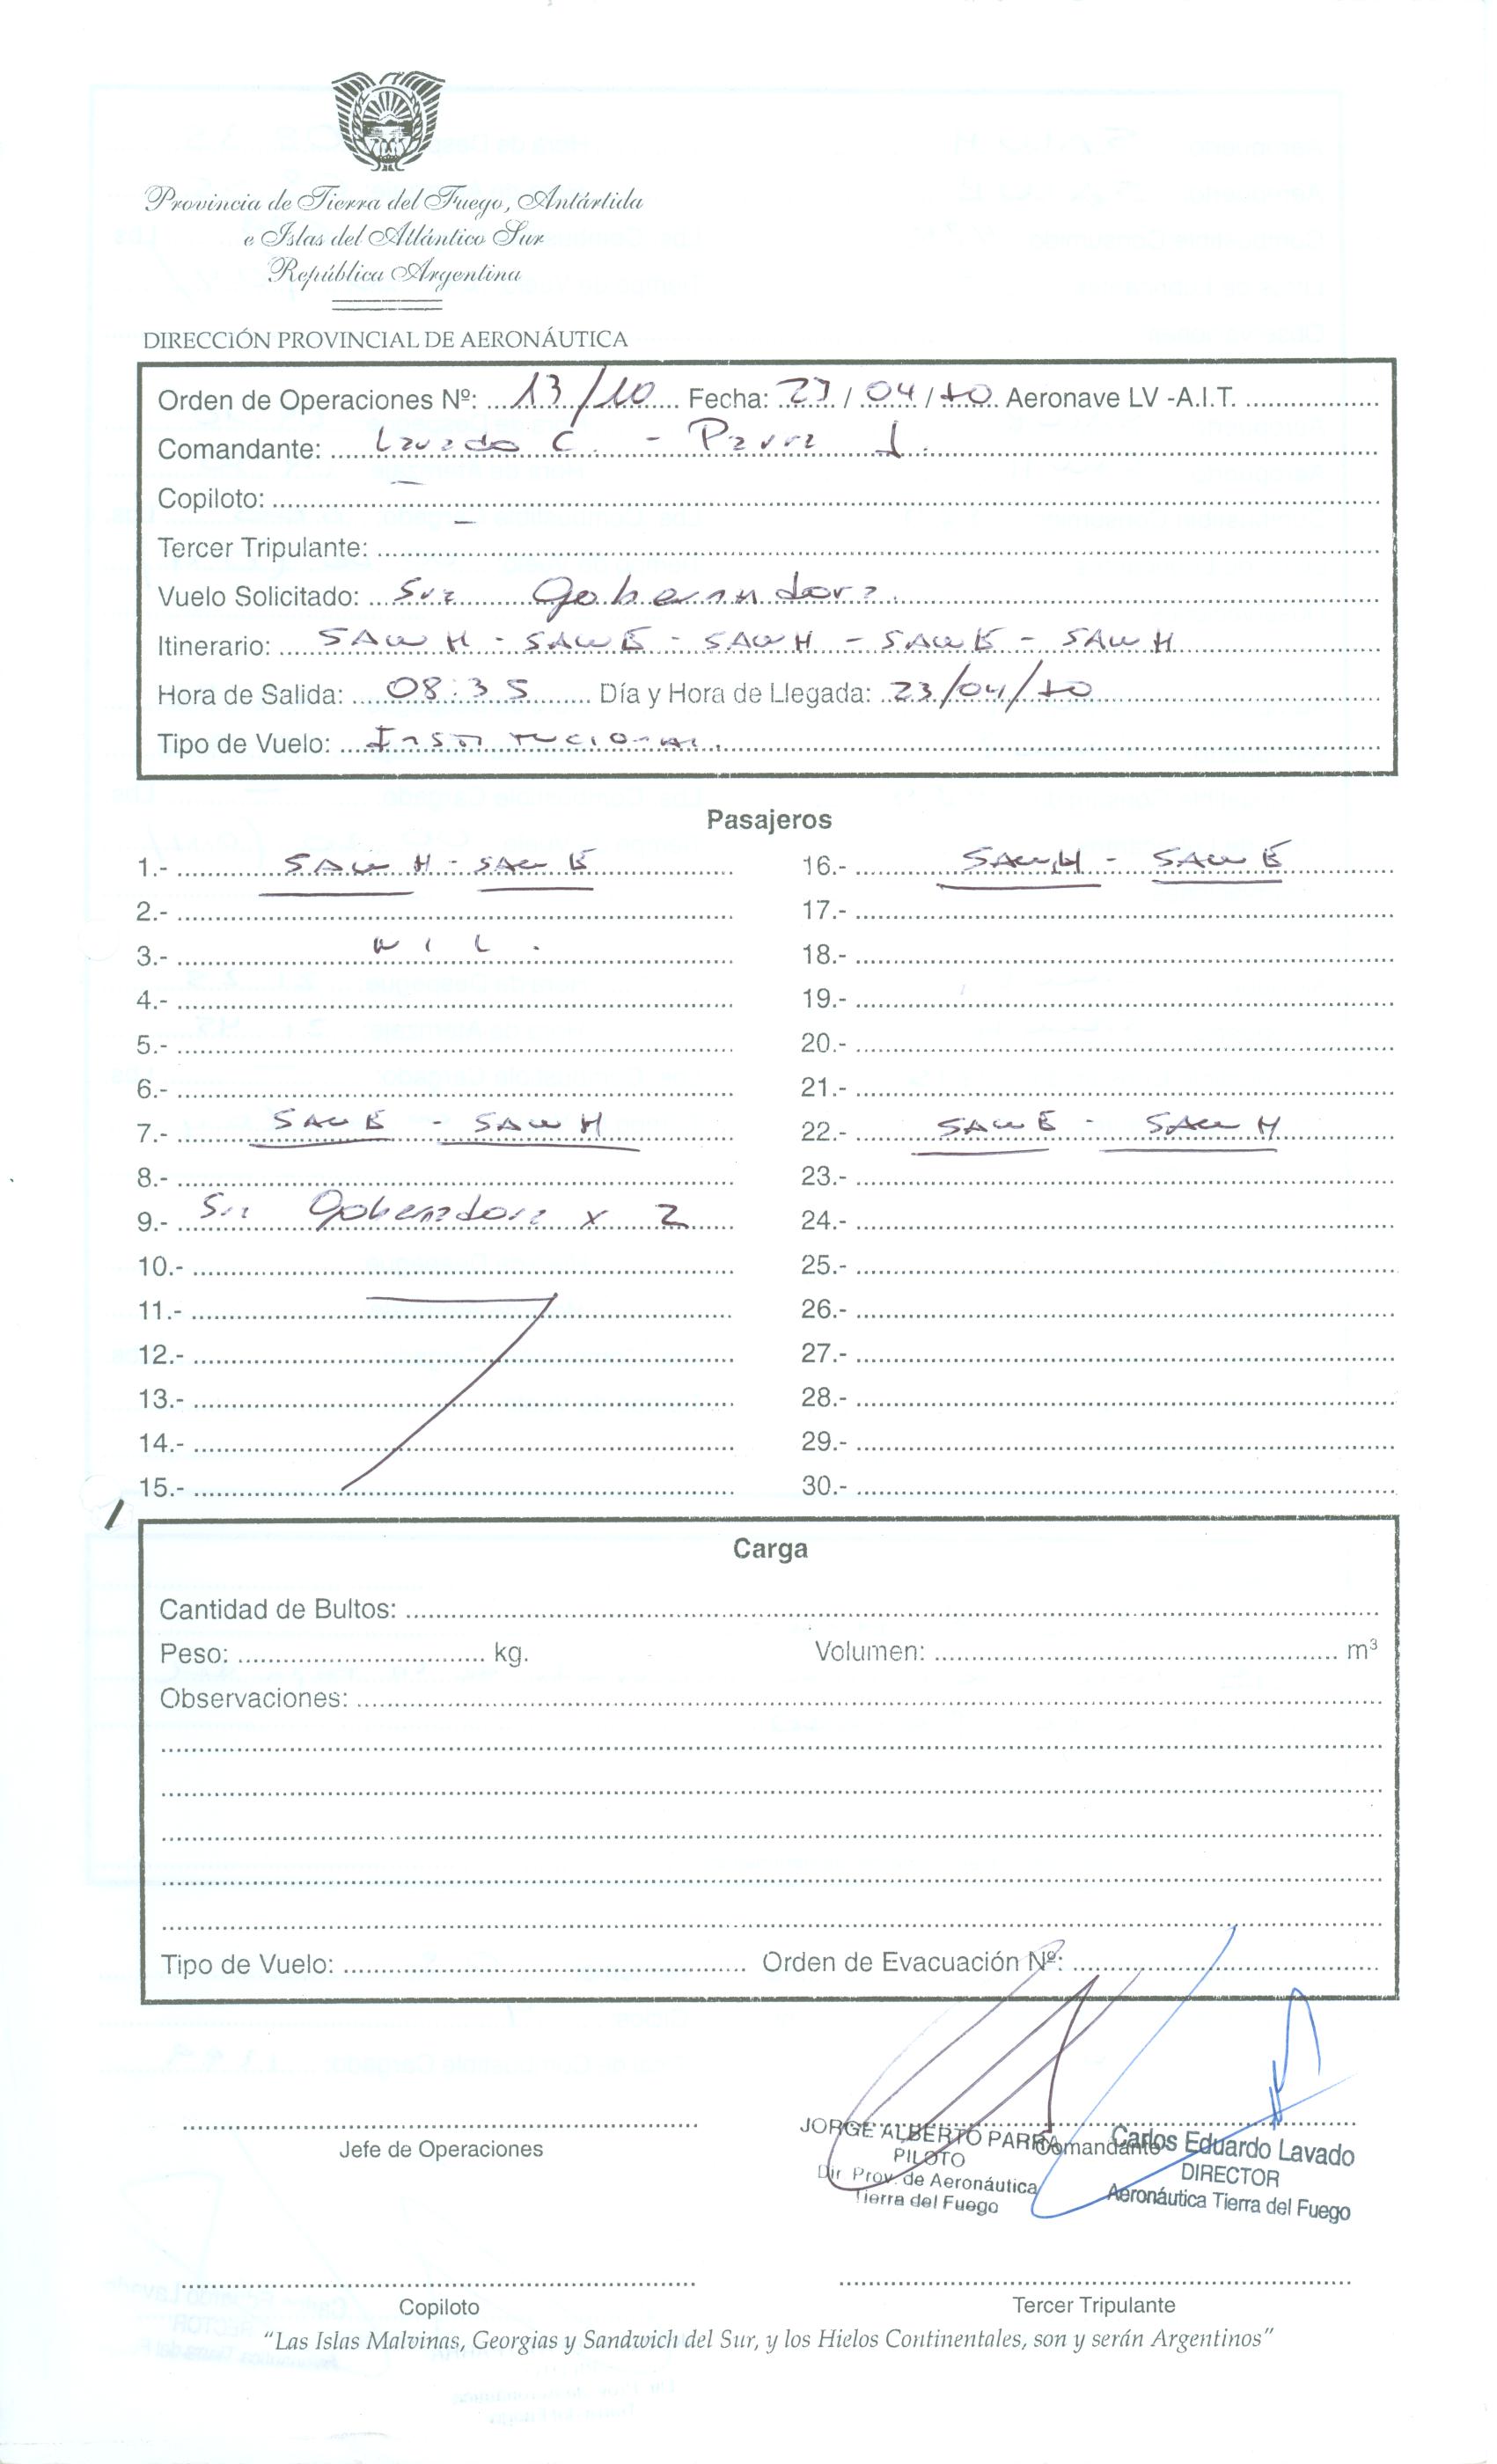 Provincia de Tierra del Fuego, Antártida
e Islas del Atlántico Sur
República Argentina
DIRECCIÓN PROVINCIAL DE AERONÁUTICA
Orden de Operaciones Nº: 13/10 Fecha: 23/04/10 Aeronave LV -A.I.T.
Comandante: Lavado C. - Parra J.
Copiloto: -
Tercer Tripulante: -
Vuelo Solicitado: Sra Gobernadora.
Itinerario: SAWH - SAWE - SAWH - SAWE - SAWH
Hora de Salida: 08:35 Día y Hora de Llegada: 23/04/10
Tipo de Vuelo: Institucional.
Pasajeros
1.- SAWH - SAWE
2.-
3.- NIL.
4.-
5.-
6.-
7.- SAWE - SAWH
8.-
9.- Sra Gobernadora x 2
10.-
11.-
12.-
13.-
14.-
15.-
16.- SAWH - SAWE
17.-
18.-
19.-
20.-
21.-
22.- SAWE - SAWH
23.-
24.-
25.-
26.-
27.-
28.-
29.-
30.-
Carga
Cantidad de Bultos:
Peso: kg. Volumen: m³
Observaciones:
Tipo de Vuelo: Orden de Evacuación Nº:
Jefe de Operaciones
Comandante
JORGE ALBERTO PARRA
PILOTO
Dir. Prov. de Aeronáutica
Tierra del Fuego
Carlos Eduardo Lavado
DIRECTOR
Aeronáutica Tierra del Fuego
Copiloto
Tercer Tripulante
"Las Islas Malvinas, Georgias y Sandwich del Sur, y los Hielos Continentales, son y serán Argentinos"